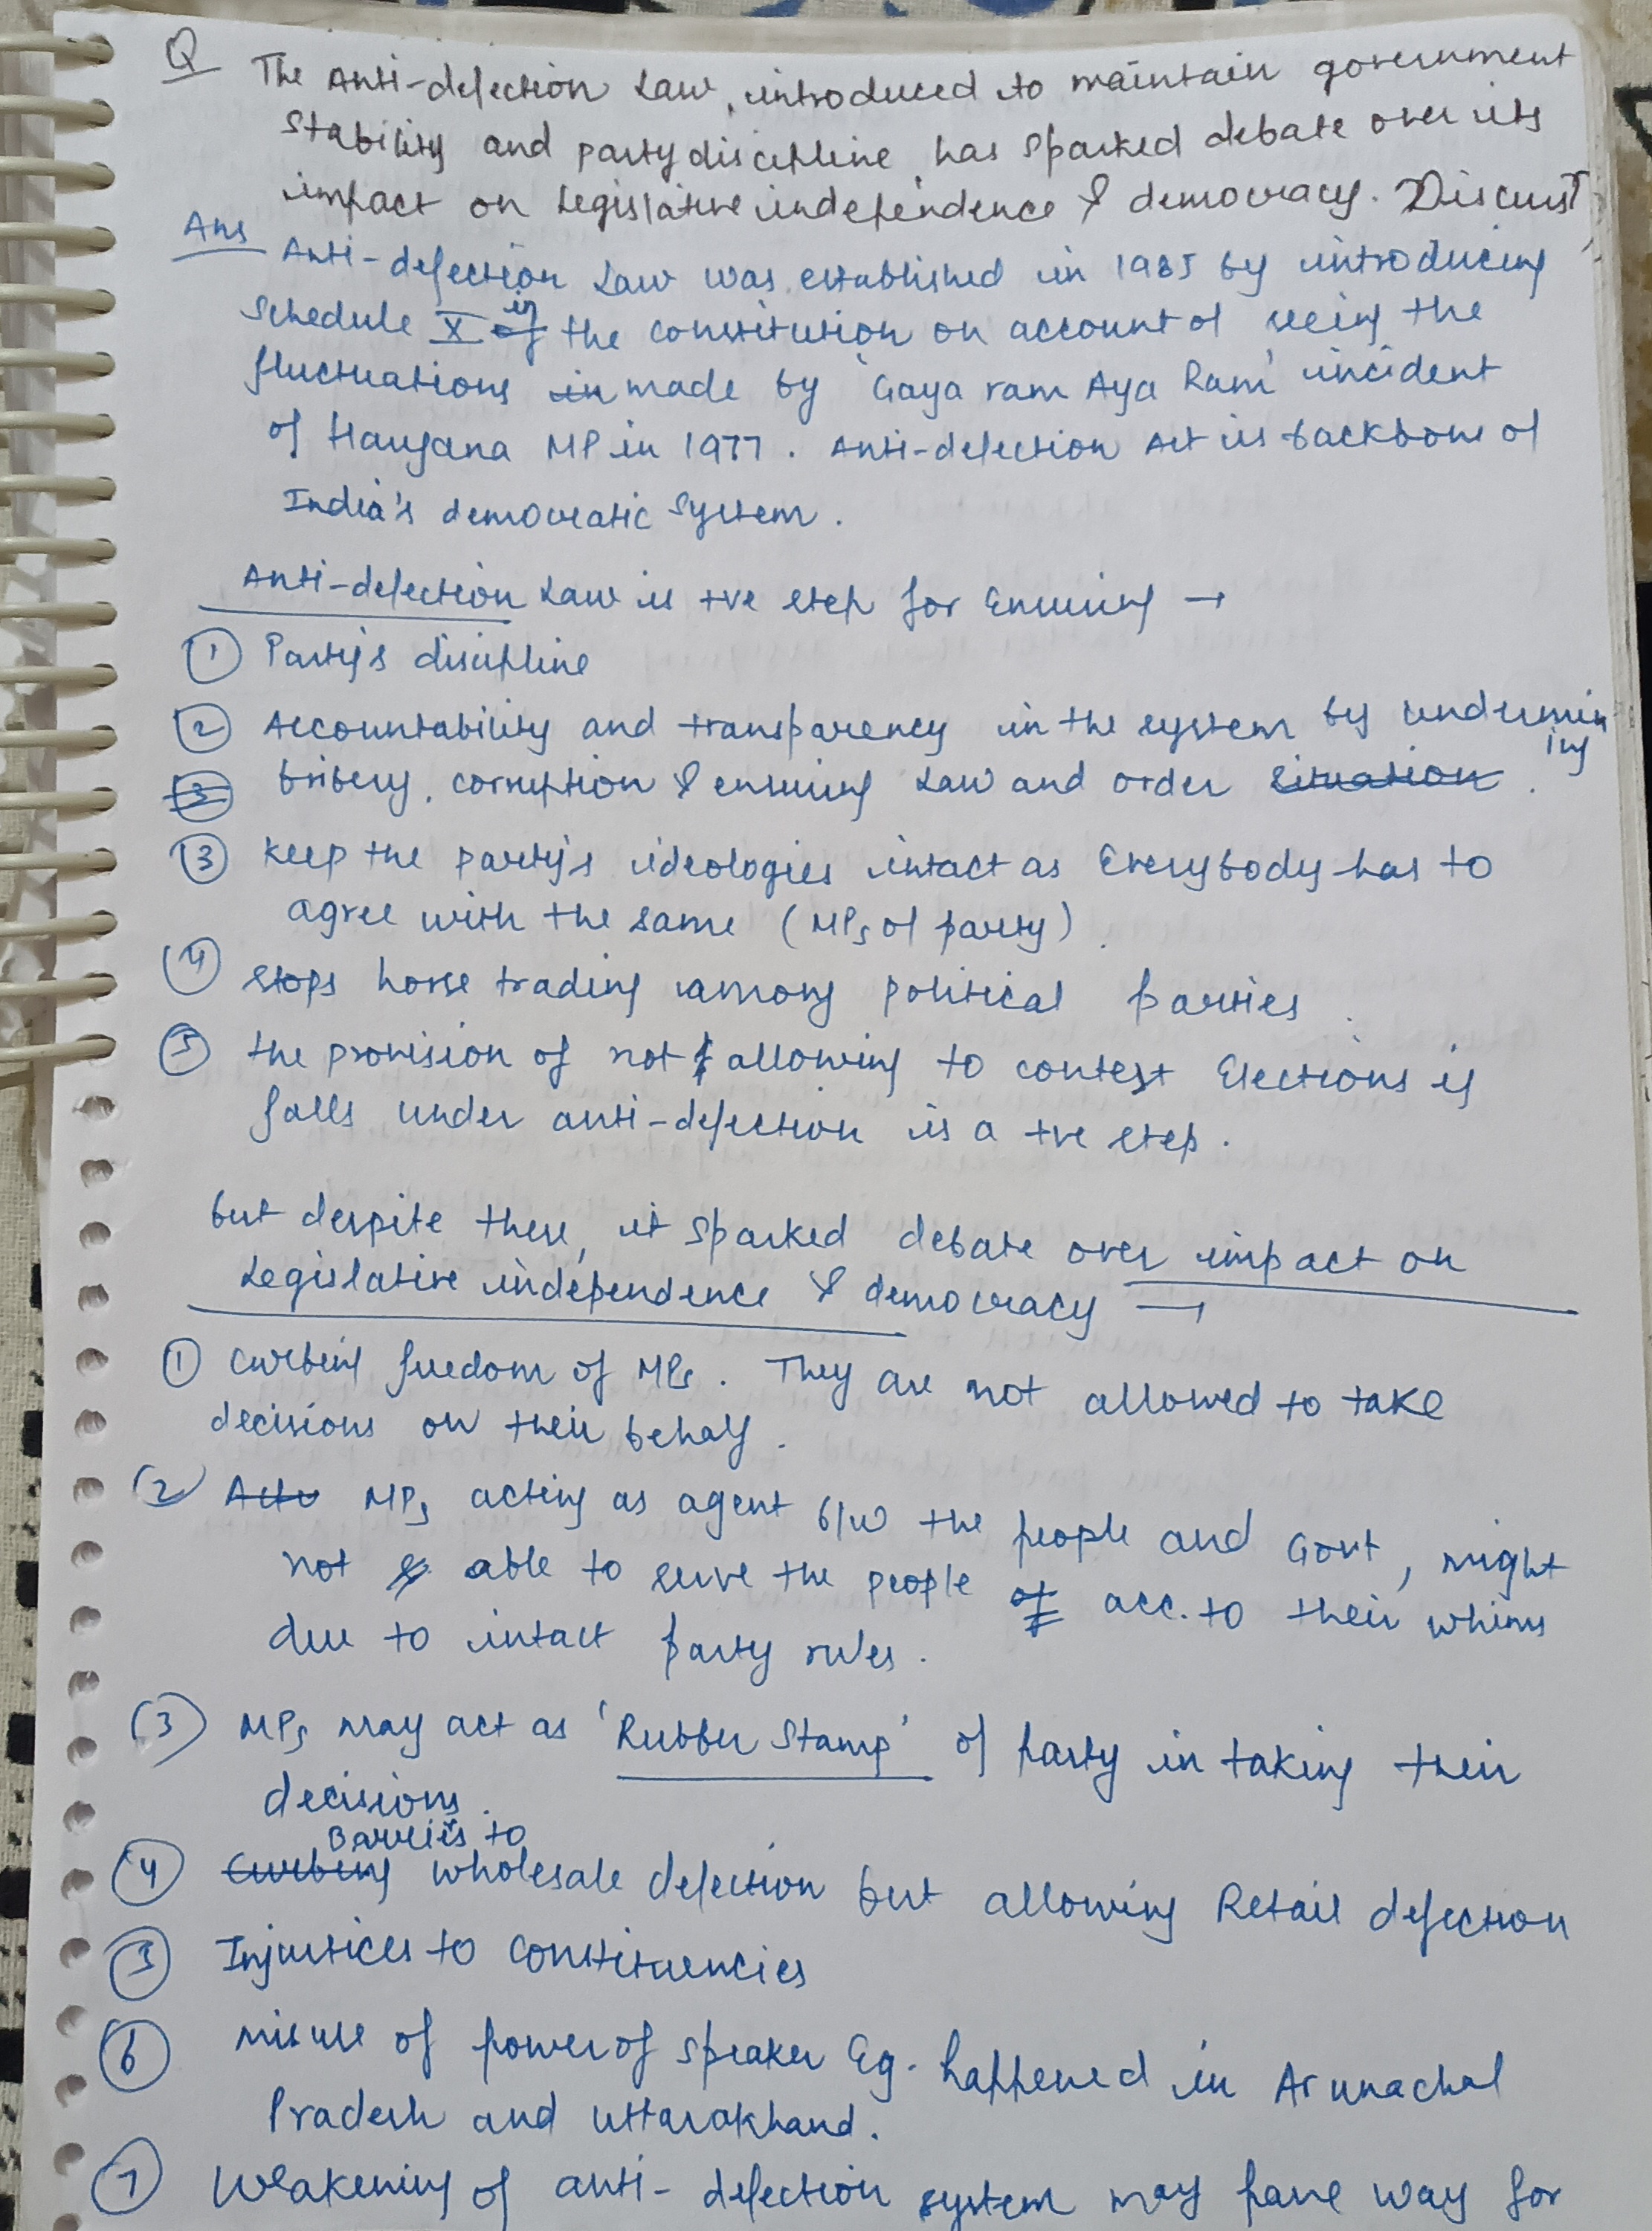 Q The Anti-defection Law, introduced to maintain government
stability and party discipline, has sparked debate over its
impact on legislative independence & democracy. Discuss
Ans Anti-defection Law was established in 1985 by introducing
Schedule X of in the constitution on account of seeing the
fluctuations in made by 'Gaya ram Aya Ram' incident
of Haryana MP in 1977. Anti-defection Act is backbone of
India's democratic system.
Anti-defection Law is +ve step for Ensuring →
1 Party's discipline
2 Accountability and transparency in the system by undermining
3 bribery, corruption & ensuring Law and order situation.
3 keep the party's ideologies intact as Everybody has to
agree with the same (MPs of party).
4 stops horse trading among political parties.
5 the provision of not allowing to contest Elections if
falls under anti-defection is a +ve step.
but despite these, it sparked debate over impact on
Legislative independence & democracy →
1 curbing freedom of MPs. They are not allowed to take
decisions on their behalf.
2 MPs acting as agent b/w the people and Govt, might
not able to serve the people of acc. to their whims
due to intact party rules.
3 MPs may act as 'Rubber Stamp' of party in taking their
decisions.
Barriers to
4 Curbing wholesale defection but allowing Retail defection
5 Injustices to constituencies
6 misuse of power of speaker Eg. happened in Arunachal
Pradesh and uttarakhand.
7 Weakening of anti-defection system may pave way for